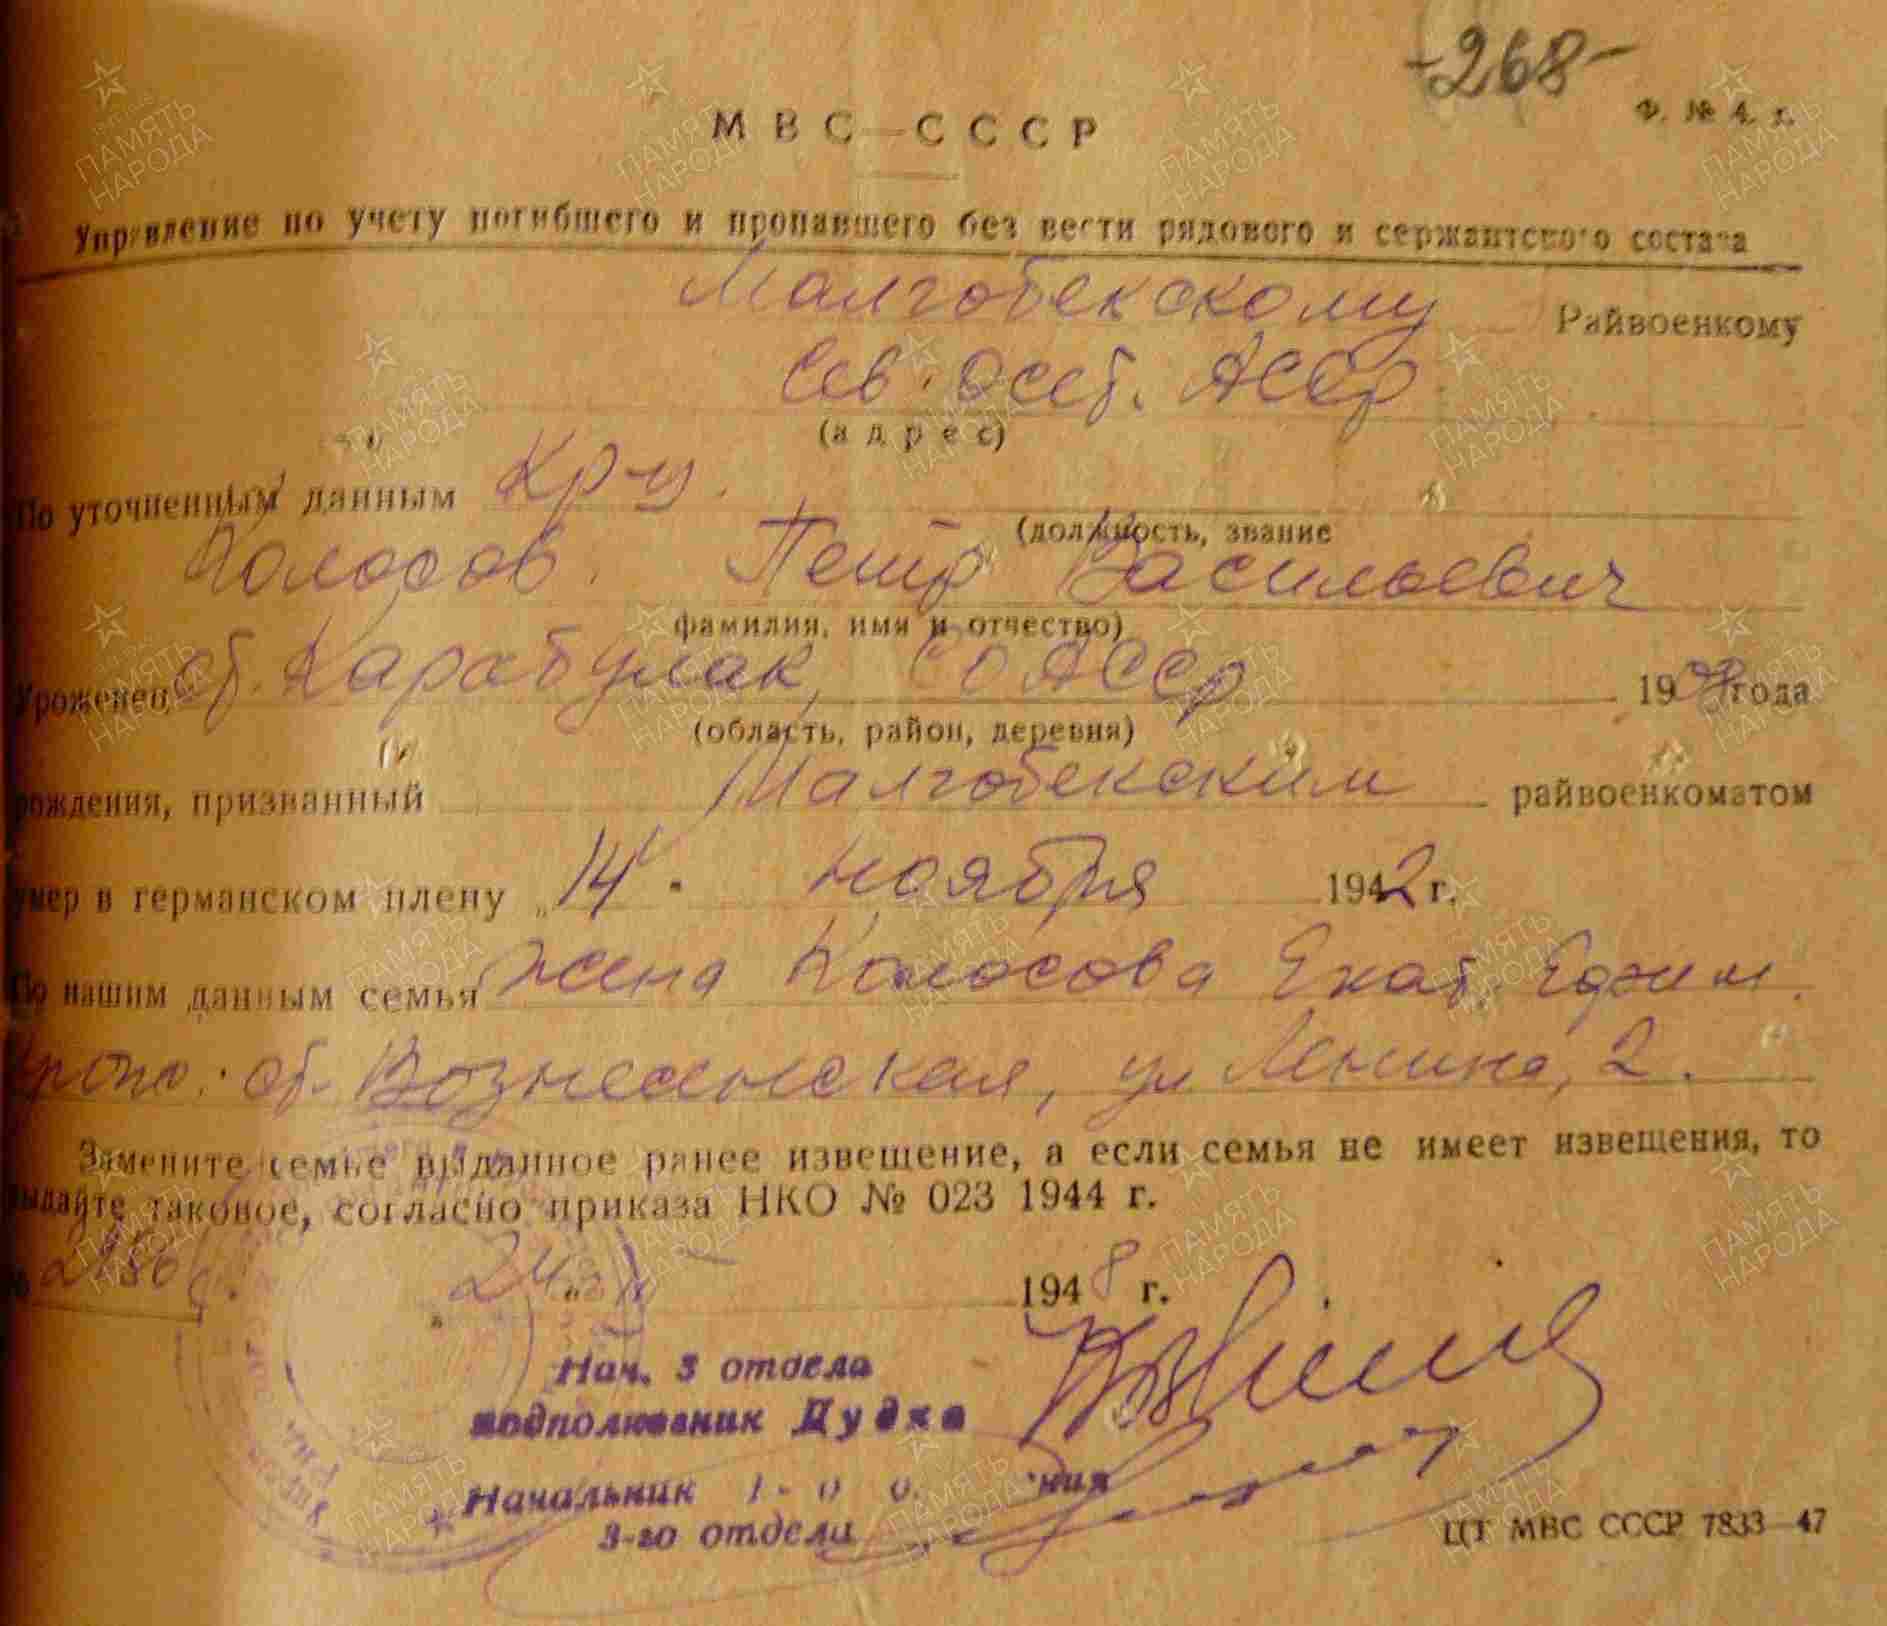 -268-
Ф. № 4. г.
МВС—СССР
Управление по учету погибшего и пропавшего без вести рядового и сержантского состава
Малгобекскому Райвоенкому
Сев. Осет. АССР
(адрес)
По уточненным данным Кр-ц.
(должность, звание
Колосов Петр Васильевич
фамилия, имя и отчество)
Уроженец ст. Карабулак, СОАССР 19 года
(область, район, деревня)
рождения, призванный Малгобекским райвоенкоматом
умер в германском плену „14" ноября 1942 г.
По нашим данным семья жена Колосова Екат.
ст. Вознесенская, ул Ленина, 2.
Замените семье выданное ранее извещение, а если семья не имеет извещения, то
выдайте таковое, согласно приказа НКО № 023 1944 г.
24 1948 г.
Нач. 3 отдела
подполковник Дудка
Начальник 1-го отделения
3-го отдела
ЦТ МВС СССР 7833—47
ПАМЯТЬ НАРОДА